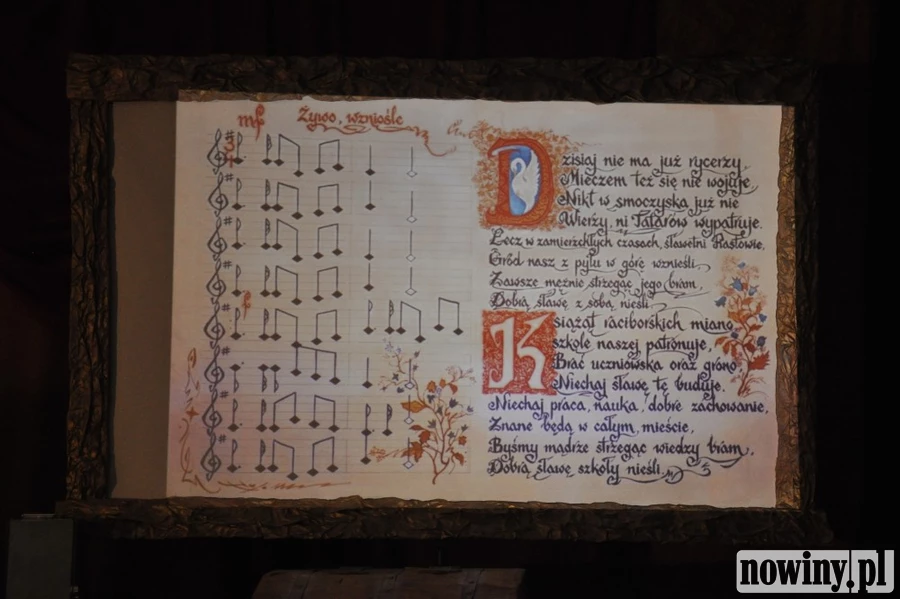 mf Żywo, wzniośle
Dzisiaj nie ma już rycerzy,
Mieczem też się nie wojuje,
Nikt w smoczyska już nie
Wierzy, ni Tatarów wypatruje.
Lecz w zamierzchłych czasach, sławetni Piastowie,
Gród nasz z pyłu w górę wznieśli,
Zawsze mężnie strzegąc jego bram,
Dobrą sławę z sobą nieśli.
Książąt raciborskich miano,
szkole naszej patronuje,
Brać uczniowska oraz grono,
Niechaj sławę tę buduje.
Niechaj praca, nauka, dobre zachowanie,
Znane będą w całym mieście,
Byśmy mądrze strzegąc wiedzy bram,
Dobrą sławę szkoły nieśli.
nowiny.pl